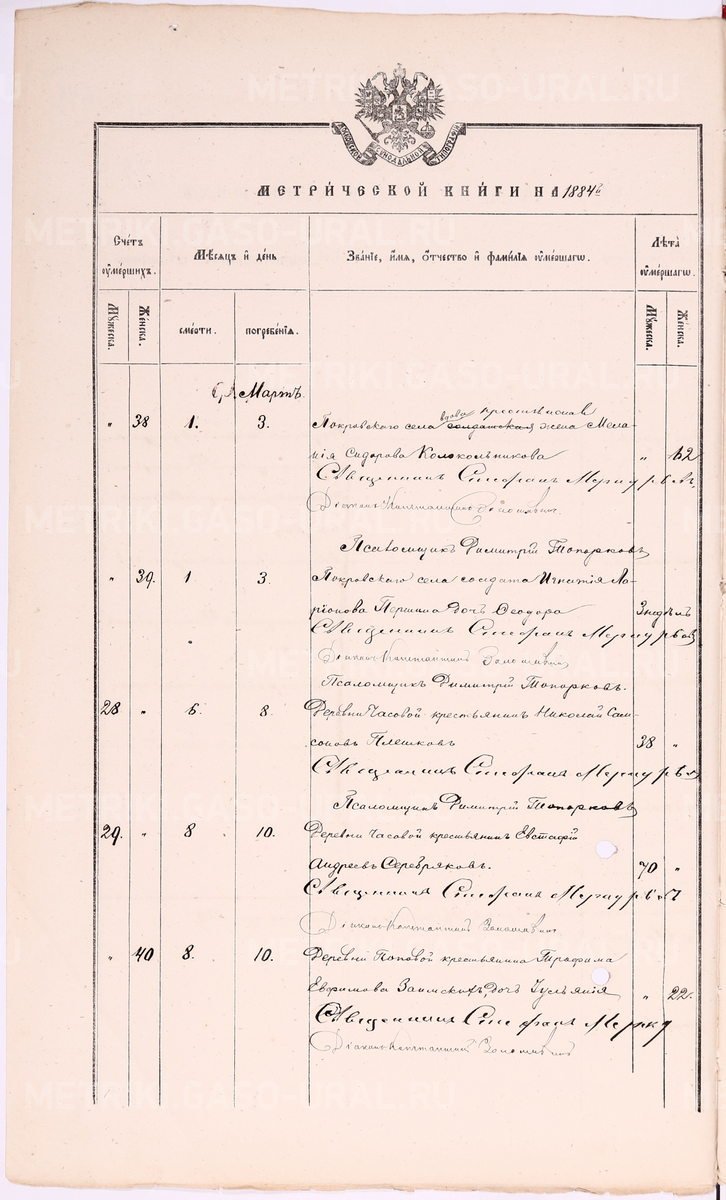 МОСКОВСКОЙ СѴНОДАЛЬНОЙ ТИПОГРАФІИ
МЕТРИ́ЧЕСКОЙ КНИ́ГИ НА 1884 г.
Сче́тъ ѹме́ршихъ.
Мѣ́сяцъ и҆ де́нь
Зва́нїе, и҆́мя, ѻ҆́тчество и҆ фами́лїя ѹ҆ме́ршагѡ.
Лѣ́та ѹ҆ме́ршагѡ.
Мꙋ́жеска.
Же́нска.
сме́рти.
погребе́нїя.
Мꙋ́жеска.
Же́нска.
Мартъ.
" 38 1. 3. Покровскаго села вдова крестьянская солдатская жена Мела-
нія Сидорова Колокольникова " 62
Священникъ Стефанъ Меркурьевъ
Діаконъ Константинъ
Псаломщикъ Димитрій Топорковъ
" 39. 1 3. Покровскаго села солдата Игнатія Ла-
ріонова Першина дочь Ѳеодора 3 недѣль
Священникъ Стефанъ Меркурьевъ
Діаконъ Константинъ
Псаломщикъ Димитрій Топорковъ.
28 " 6. 8. Деревни Часовой крестьянинъ Николай Сам-
соновъ Плешковъ 38 "
Священникъ Стефанъ Меркурьевъ
Псаломщикъ Димитрій Топорковъ
29. " 8 10. Деревни Часовой крестьянинъ Евстафій
Андреевъ Серебряковъ. 70 "
Священникъ Стефанъ Меркурьевъ
Діаконъ Константинъ
" 40 8. 10. Деревни Поповой крестьянина Трофима
Евфимова Заимскихъ, дочь Іуліанія " 22.
Священникъ Стефанъ Мерку
Діаконъ Константинъ
METRIKI.GASO-URAL.RU